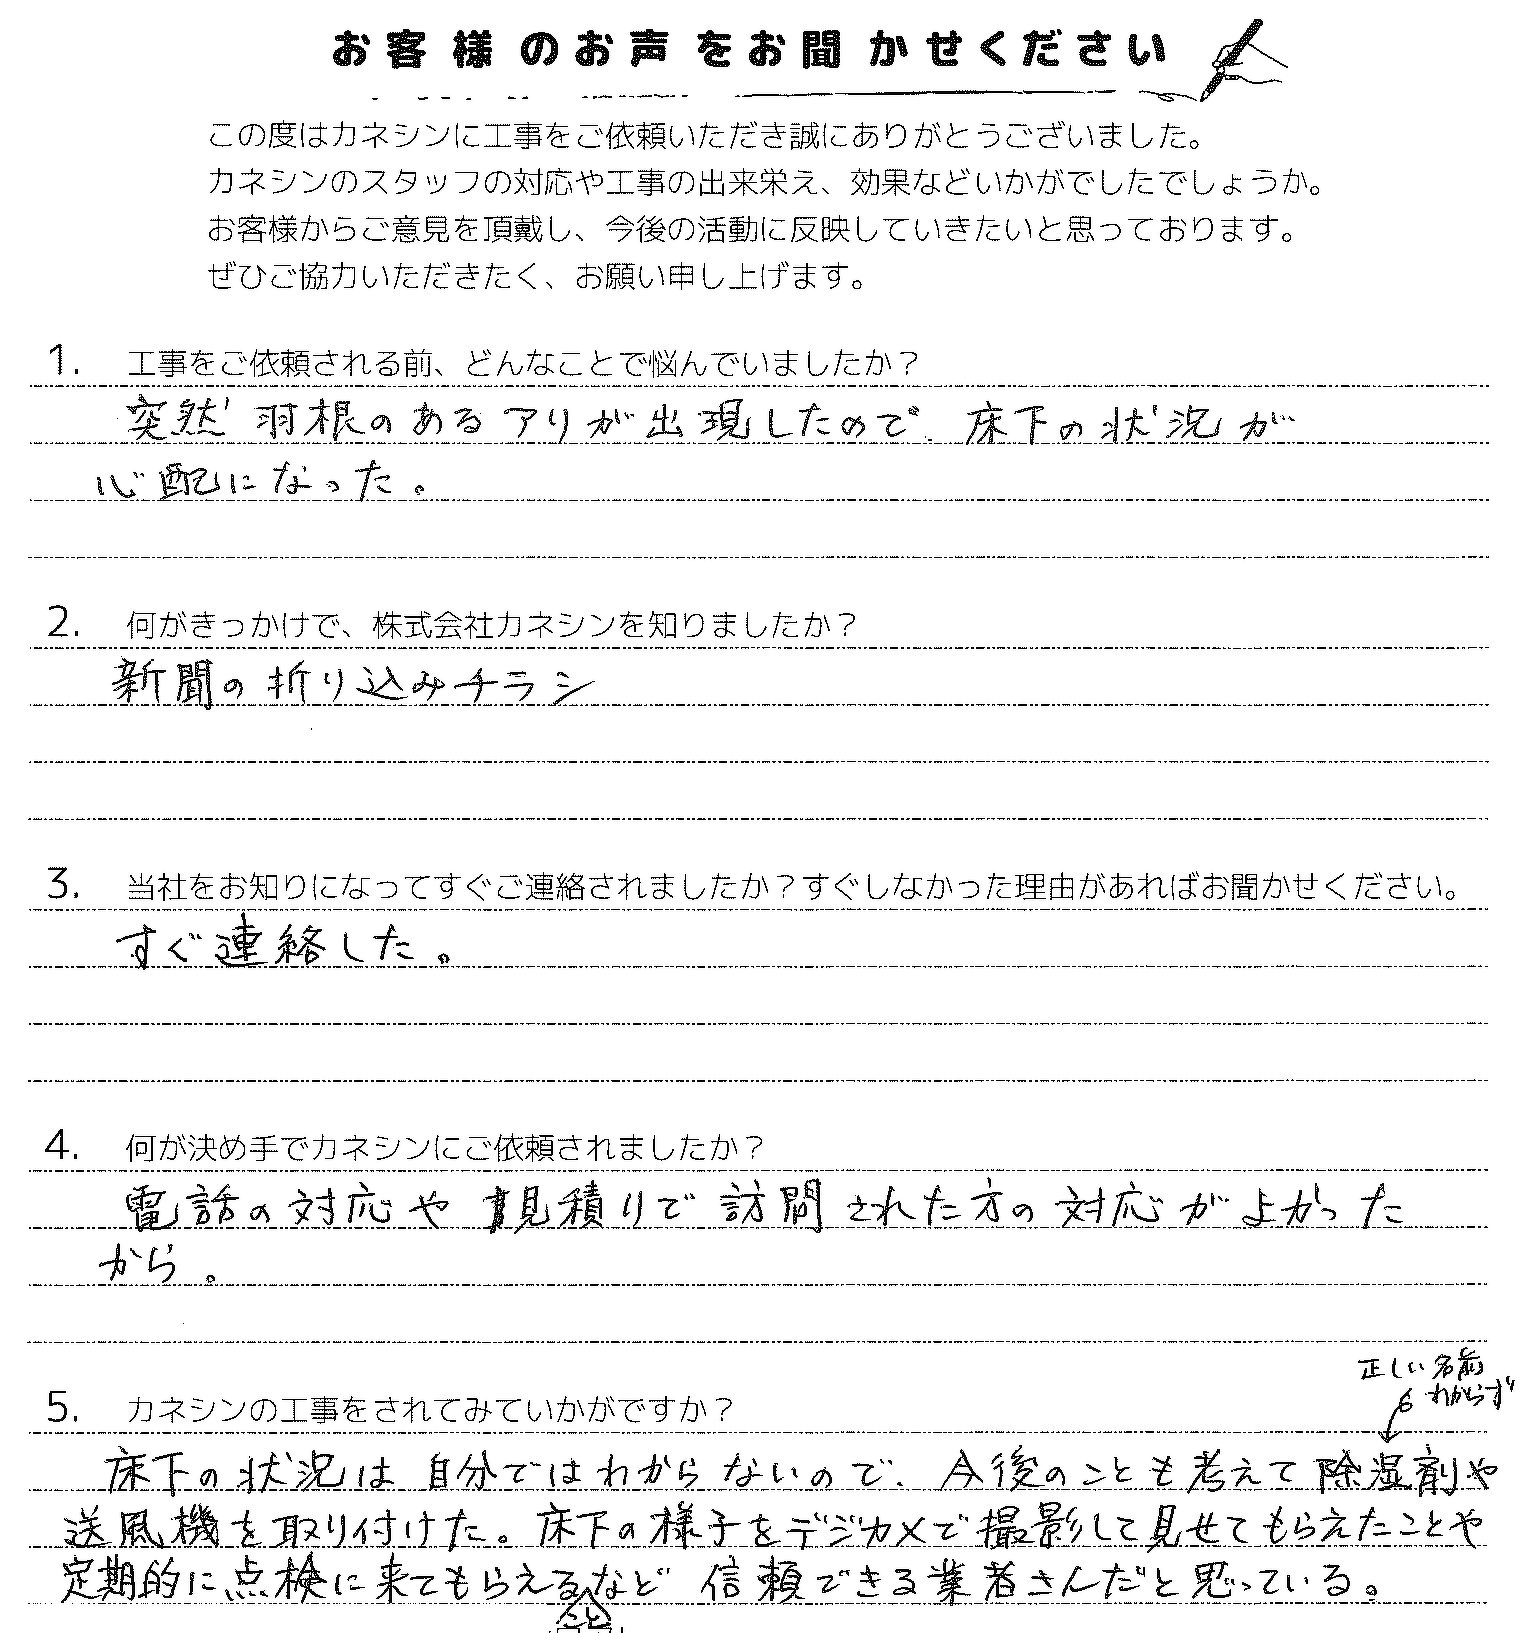 お客様のお声をお聞かせください
この度はカネシンに工事をご依頼いただき誠にありがとうございました。
カネシンのスタッフの対応や工事の出来栄え、効果などいかがでしたでしょうか。
お客様からご意見を頂戴し、今後の活動に反映していきたいと思っております。
ぜひご協力いただきたく、お願い申し上げます。
1. 工事をご依頼される前、どんなことで悩んでいましたか？
突然羽根のあるアリが出現したので、床下の状況が
心配になった。
2. 何がきっかけで、株式会社カネシンを知りましたか？
新聞の折り込みチラシ
3. 当社をお知りになってすぐご連絡されましたか？すぐしなかった理由があればお聞かせください。
すぐ連絡した。
4. 何が決め手でカネシンにご依頼されましたか？
電話の対応や見積りで訪問された方の対応がよかった
から。
5. カネシンの工事をされてみていかがですか？
正しい名前
わからず
床下の状況は自分ではわからないので、今後のことも考えて除湿剤や
送風機を取り付けた。床下の様子をデジカメで撮影して見せてもらえたことや
定期的に点検に来てもらえるなど信頼できる業者さんだと思っている。
こと